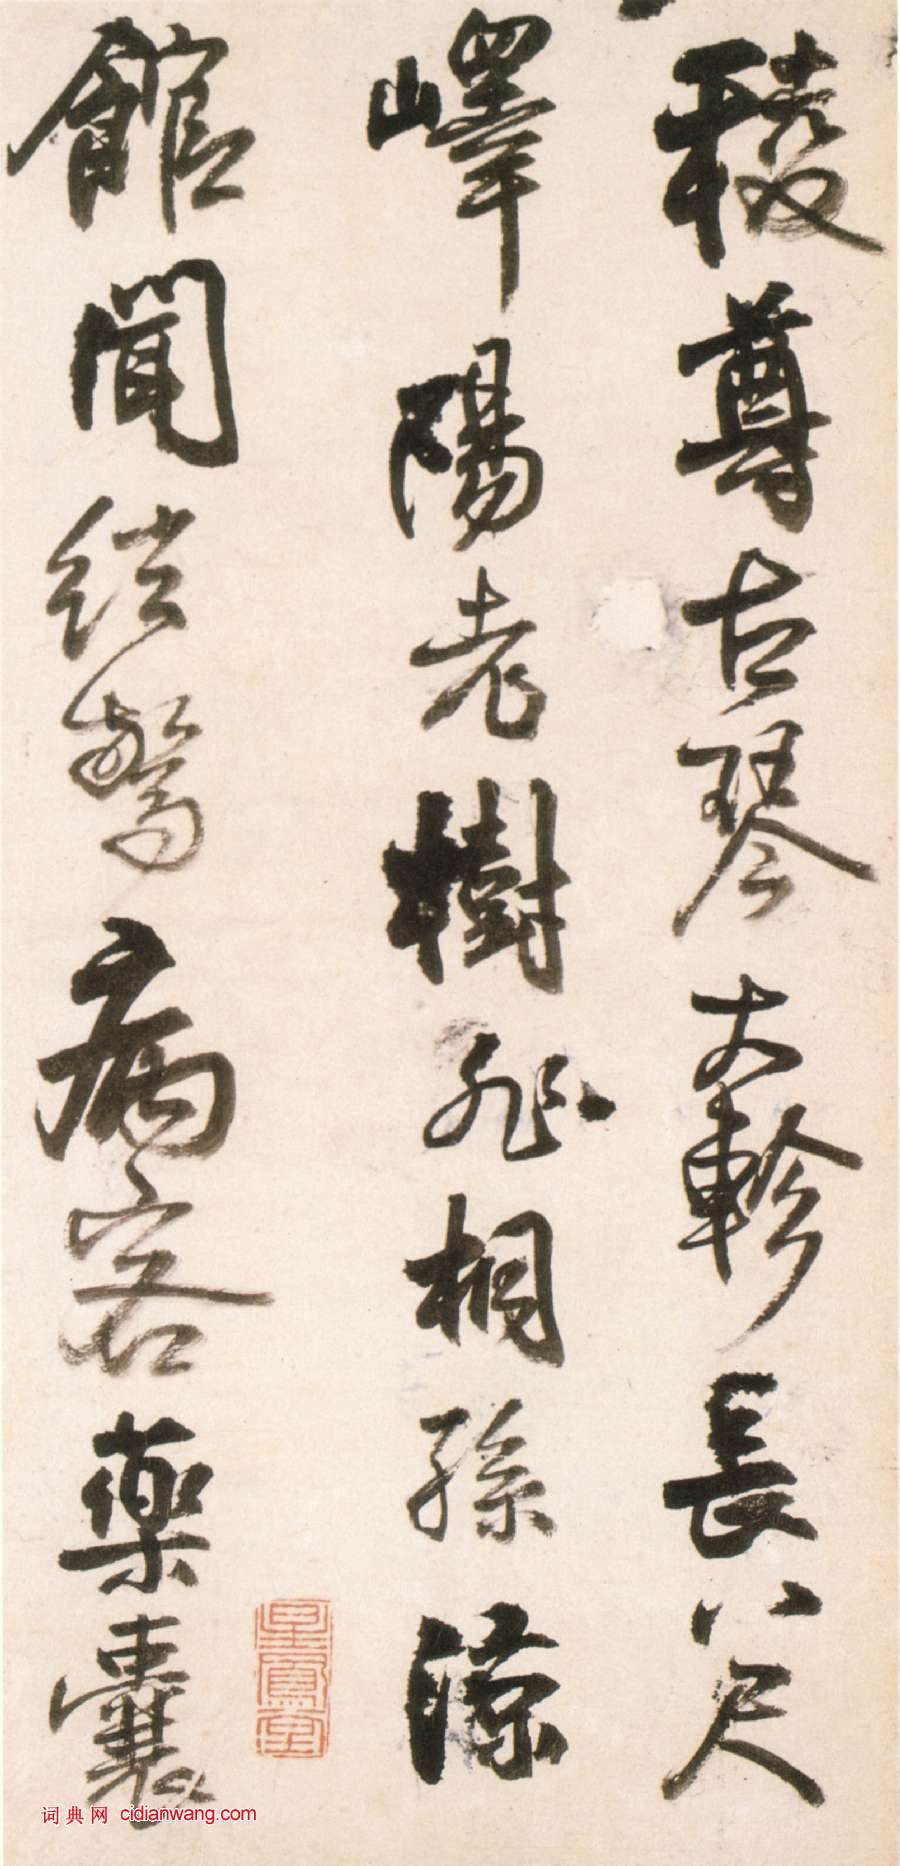 稜尊古琴大軫長八尺
嶧陽老樹非桐孫涼
館聞絃驚病客藥囊
词典网 cidianwang.com